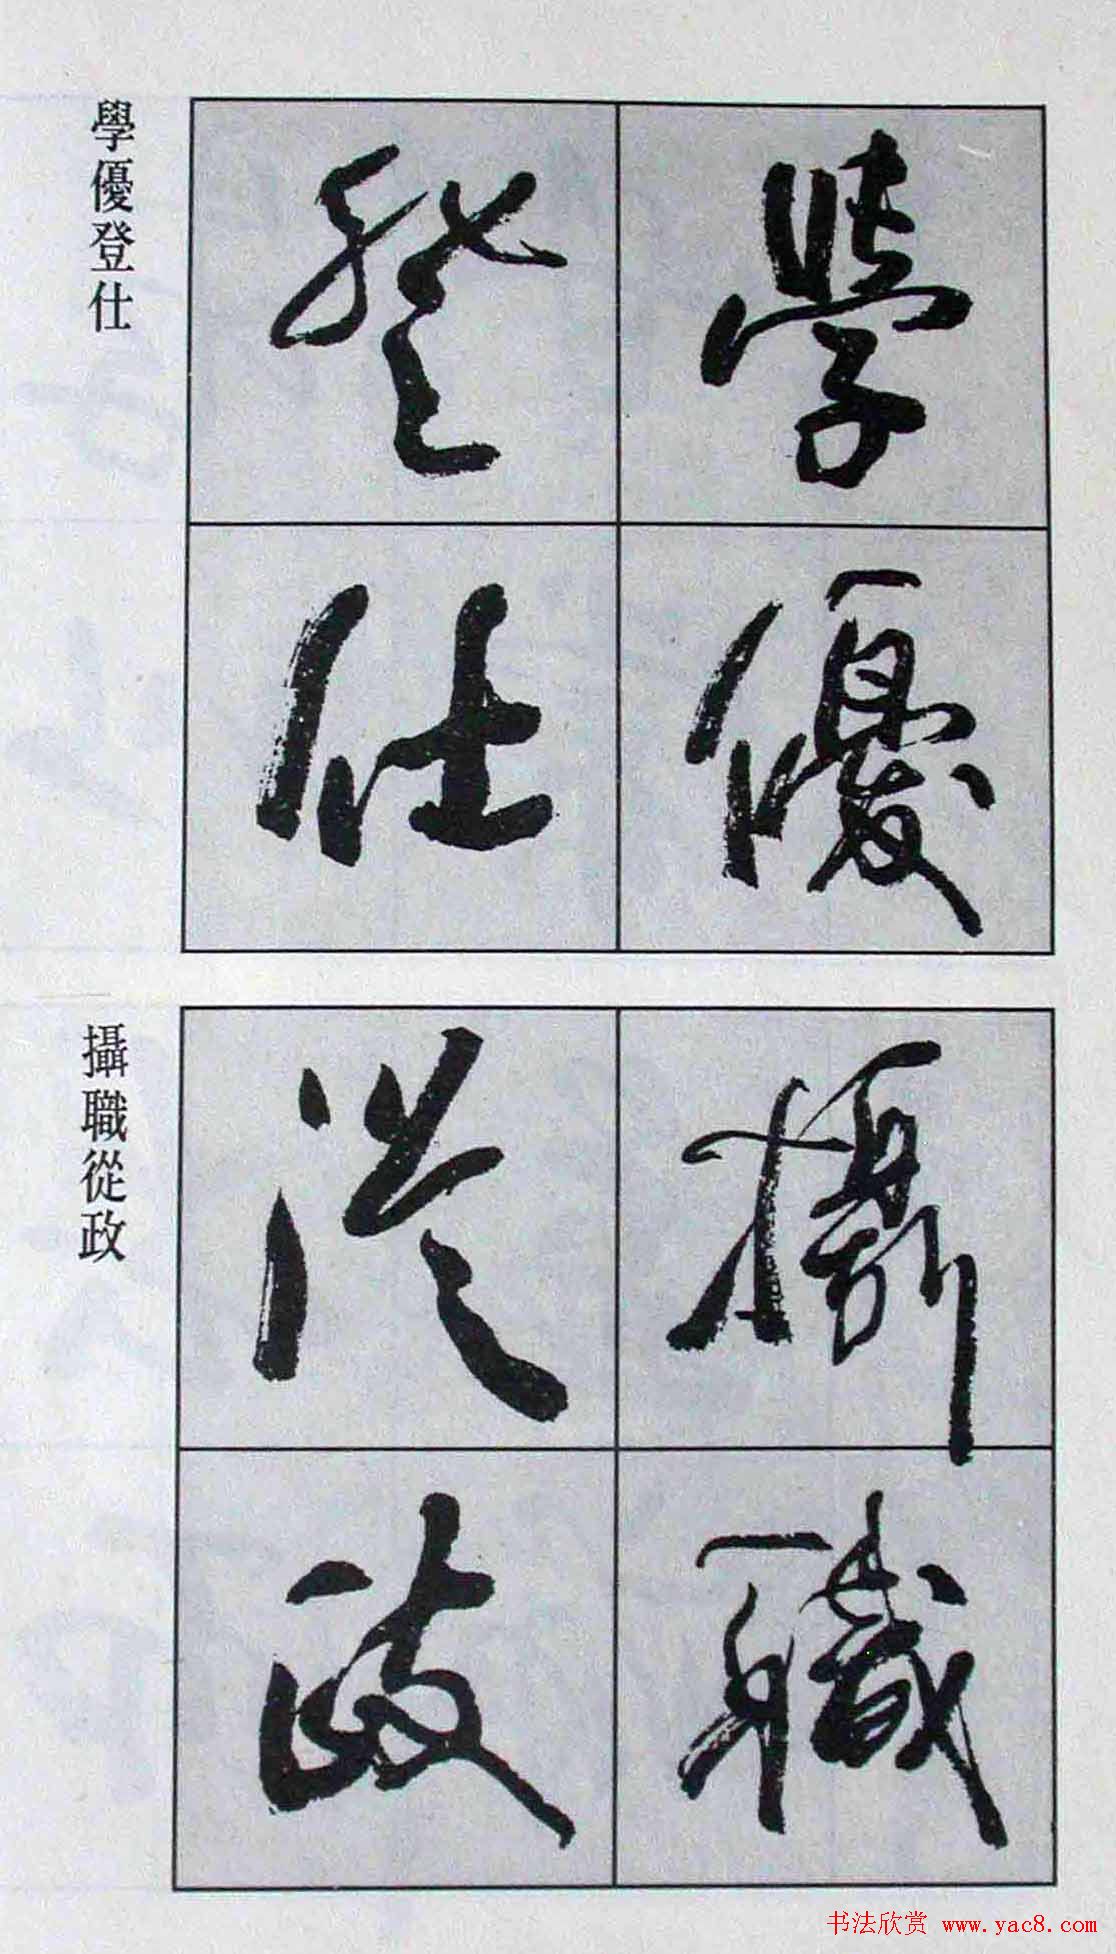 學優
登仕
學優登仕
攝職
從政
攝職從政
书法欣赏 www.yac8.com